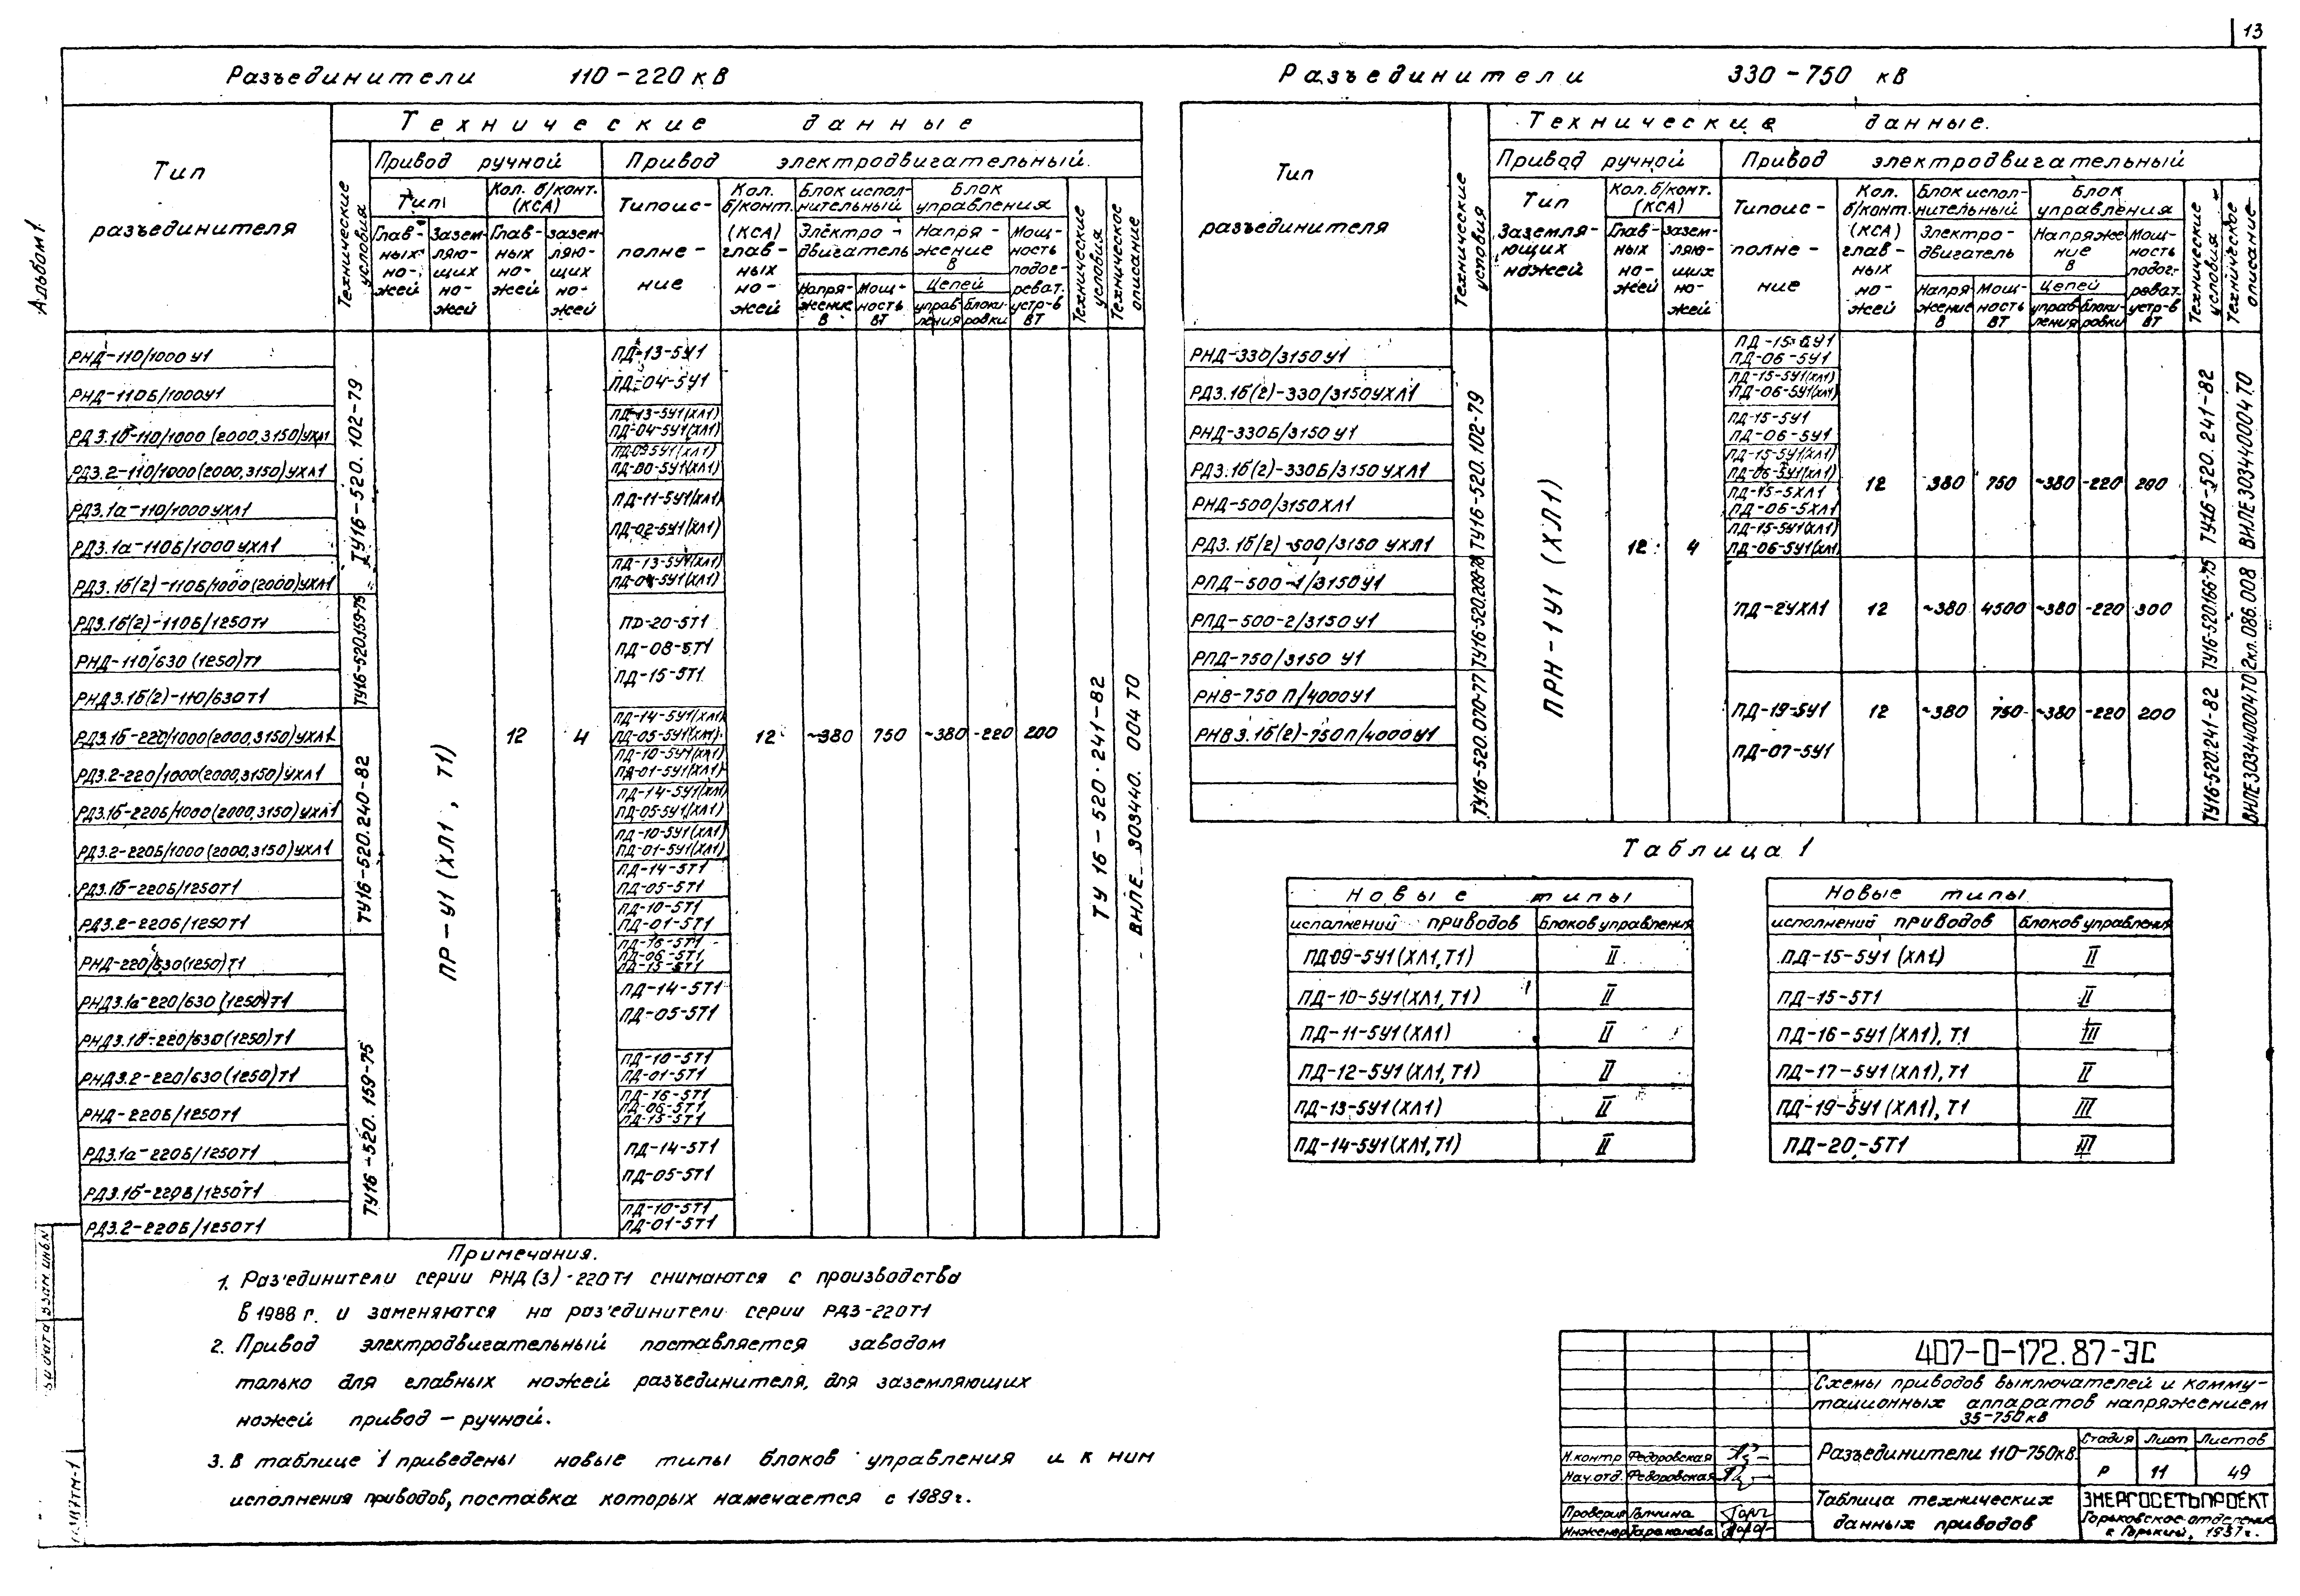 13
Альбом 1
Разъединители 110-220 кВ
Тип разъединителя
Технические данные
Технические условия
Привод ручной
Привод электродвигательный.
Тип
Кол. б/конт. (КСА)
Главных ножей
Заземляющих ножей
Главных ножей
заземляющих ножей
Типоисполнение
Кол. б/конт. (КСА) главных ножей
Блок исполнительный
Электродвигатель
Напряжение В
Мощность ВТ
Блок управления
Напряжение В
Цепей
управления
блокировки
Мощность подогреват. устр-в ВТ
Технические условия
Техническое описание
РНД-110/1000 У1
РНД-110Б/1000У1
РДЗ.1б-110/1000 (2000,3150)УХЛ1
РДЗ.2-110/1000(2000,3150)УХЛ1
РДЗ.1а-110/1000УХЛ1
РДЗ.1а-110Б/1000 УХЛ1
РДЗ.1б(2)-110Б/1000(2000)УХЛ1
РДЗ.1б(2)-110Б/1250Т1
РНД-110/630 (1250)Т1
РНДЗ.1б(2)-110/630Т1
РДЗ.1б-220/1000(2000,3150)УХЛ1
РДЗ.2-220/1000(2000,3150)УХЛ1
РДЗ.1б-220Б/1000(2000,3150)УХЛ1
РДЗ.2-220Б/1000(2000,3150)УХЛ1
РДЗ.1б-220Б/1250Т1
РДЗ.2-220Б/1250Т1
РНД-220/630(1250)Т1
РНДЗ.1а-220/630 (1250)Т1
РНДЗ.1б-220/630(1250)Т1
РНДЗ.2-220/630(1250)Т1
РНД-220Б/1250Т1
РДЗ.1а-220Б/1250Т1
РДЗ.1б-220Б/1250Т1
РДЗ.2-220Б/1250Т1
ТУ16-520.102-79
ТУ16-520.159-75
ТУ16-520.240-82
ТУ16-520.159-75
ПР-У1 (ХЛ1, Т1)
12
4
ПД-13-5У1
ПД-04-5У1
ПД-13-5У1(ХЛ1)
ПД-04-5У1(ХЛ1)
ПД-09-5У1(ХЛ1)
ПД-00-5У1(ХЛ1)
ПД-11-5У1(ХЛ1)
ПД-02-5У1(ХЛ1)
ПД-13-5У1(ХЛ1)
ПД-04-5У1(ХЛ1)
ПД-20-5Т1
ПД-08-5Т1
ПД-15-5Т1
ПД-14-5У1(ХЛ1)
ПД-05-5У1(ХЛ1)
ПД-10-5У1(ХЛ1)
ПД-01-5У1(ХЛ1)
ПД-14-5У1(ХЛ1)
ПД-05-5У1(ХЛ1)
ПД-10-5У1(ХЛ1)
ПД-01-5У1(ХЛ1)
ПД-14-5Т1
ПД-05-5Т1
ПД-10-5Т1
ПД-01-5Т1
ПД-16-5Т1
ПД-06-5Т1
ПД-15-5Т1
ПД-14-5Т1
ПД-05-5Т1
ПД-10-5Т1
ПД-01-5Т1
ПД-16-5Т1
ПД-06-5Т1
ПД-15-5Т1
ПД-14-5Т1
ПД-05-5Т1
ПД-10-5Т1
ПД-01-5Т1
12 ~380 750 ~380 -220 200
ТУ 16-520.241-82
ВИЛЕ 303440.004 ТО
Разъединители 330-750 кВ
Тип разъединителя
Технические данные.
Технические условия
Привод ручной
Привод электродвигательный
Тип Заземляющих ножей
Кол. б/конт. (КСА)
Главных ножей
заземляющих ножей
Типоисполнение
Кол. б/конт. (КСА) главных ножей
Блок исполнительный
Электродвигатель
Напряжение В
Мощность ВТ
Блок управления
Напряжение В
Цепей
управления
блокировки
Мощность подогреват. устр-в ВТ
Технические условия
Техническое описание
РНД-330/3150У1
РДЗ.1б(2)-330/3150УХЛ1
РНД-330Б/3150 У1
РДЗ.1б(2)-330Б/3150 УХЛ1
РНД-500/3150ХЛ1
РДЗ.1б(2)-500/3150 УХЛ1
РПД-500-1/3150У1
РПД-500-2/3150У1
РПД-750/3150 У1
РНВ-750 П/4000У1
РНВЗ.1б(2)-750П/4000У1
ТУ16-520.102-79
ТУ16-520.209-78
ТУ16-520.070-77
ПРН-1У1 (ХЛ1)
12
4
ПД-15-5У1
ПД-06-5У1
ПД-15-5У1(ХЛ1)
ПД-06-5У1(ХЛ1)
ПД-15-5У1
ПД-06-5У1
ПД-15-5У1(ХЛ1)
ПД-06-5У1(ХЛ1)
ПД-15-5ХЛ1
ПД-06-5ХЛ1
ПД-15-5У1(ХЛ1)
ПД-06-5У1(ХЛ1)
12 380 750 ~380 -220 200
ТУ16-520.241-82
ВИЛЕ303440004ТО
ПД-2УХЛ1 12 ~380 4500 ~380 -220 300
ТУ16-520.166-75
2кл.086.008
ПД-19-5У1 12 ~380 750 ~380 -220 200
ПД-07-5У1
ТУ16-520.241-82
ВИЛЕ303440004ТО
Таблица 1
Новые типы
исполнений приводов Блоков управления
ПД-09-5У1(ХЛ1,Т1) II
ПД-10-5У1(ХЛ1,Т1) II
ПД-11-5У1(ХЛ1) II
ПД-12-5У1(ХЛ1,Т1) II
ПД-13-5У1(ХЛ1) II
ПД-14-5У1(ХЛ1,Т1) II
Новые типы
исполнений приводов Блоков управления
ПД-15-5У1 (ХЛ1) II
ПД-15-5Т1 II
ПД-16-5У1(ХЛ1), Т1 III
ПД-17-5У1(ХЛ1),Т1 II
ПД-19-5У1(ХЛ1),Т1 III
ПД-20-5Т1 III
Примечания.
1. Раз'единители серии РНД(З)-220Т1 снимаются с производства
в 1988 г. и заменяются на раз'единители серии РДЗ-220Т1
2. Привод электродвигательный поставляется заводом
только для главных ножей разъединителя, для заземляющих
ножей привод - ручной.
3. В таблице 1 приведены новые типы блоков управления и к ним
исполнения приводов, поставка которых намечается с 1989г.
407-0-172.87-ЭС
Схемы приводов выключателей и комму-
тационных аппаратов напряжением
35-750кВ
Разъединители 110-750кВ.
Стадия Лист Листов
Р 11 49
Таблица технических
данных приводов
ЭНЕРГОСЕТЬПРОЕКТ
Горьковское отделение
г. Горький, 1987г.
Н.контр Федоровская
Нач.отд. Федоровская
Проверил Галкина
Инженер Тараканова
Взам.инв.№